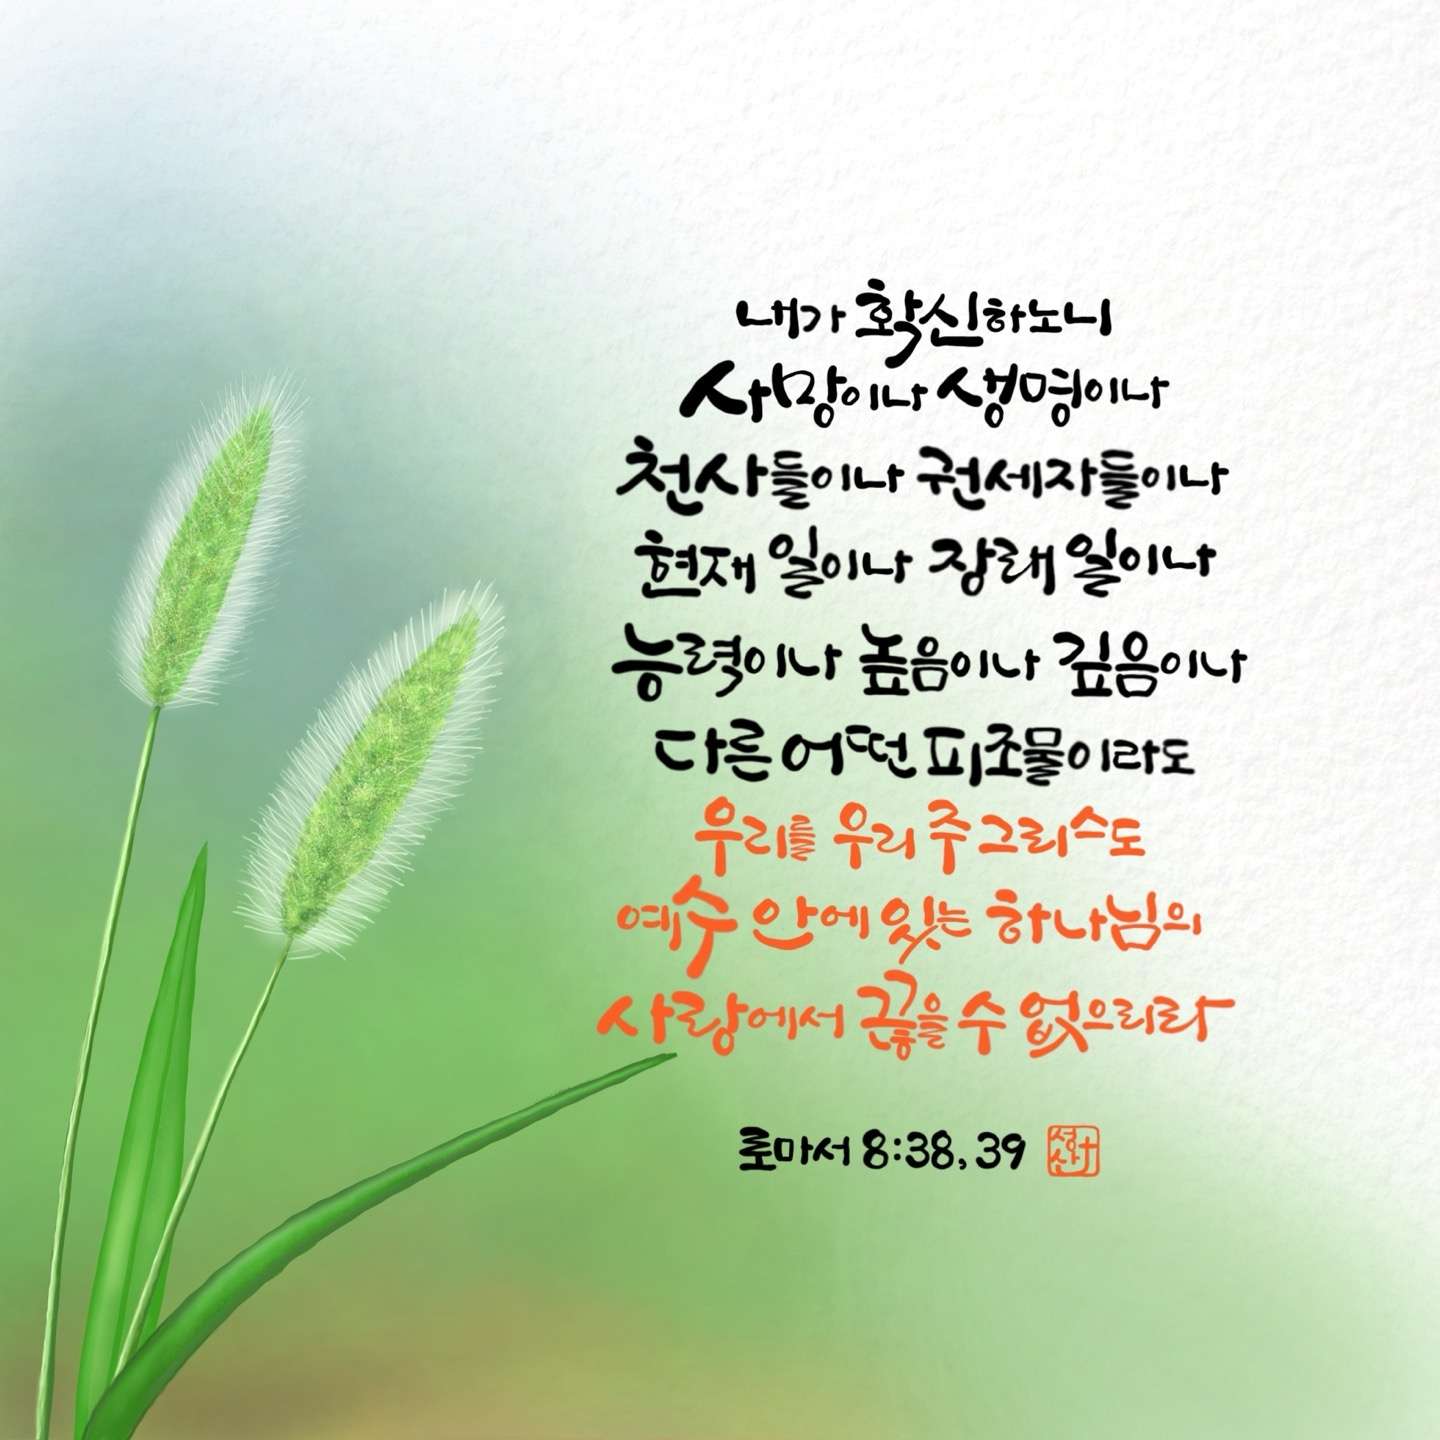 내가 확신하노니
사망이나 생명이나
천사들이나 권세자들이나
현재 일이나 장래 일이나
능력이나 높음이나 깊음이나
다른 어떤 피조물이라도
우리를 우리 주 그리스도
예수 안에 있는 하나님의
사랑에서 끊을 수 없으리라
로마서 8:38, 39